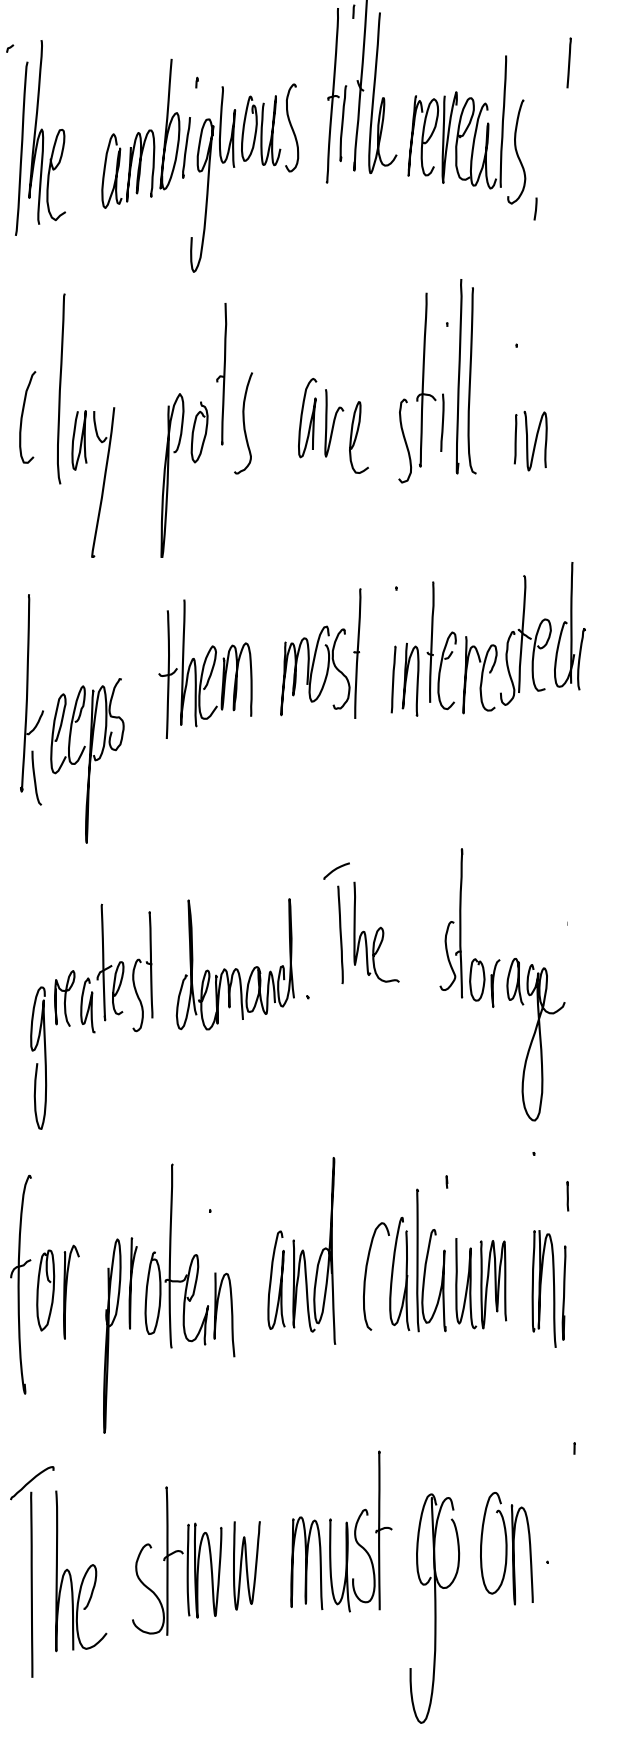 The ambiguous title reveals,
clay pots are still in
keeps them most interested
greatest demand. The storage
for protein and calcium in
The must go on.